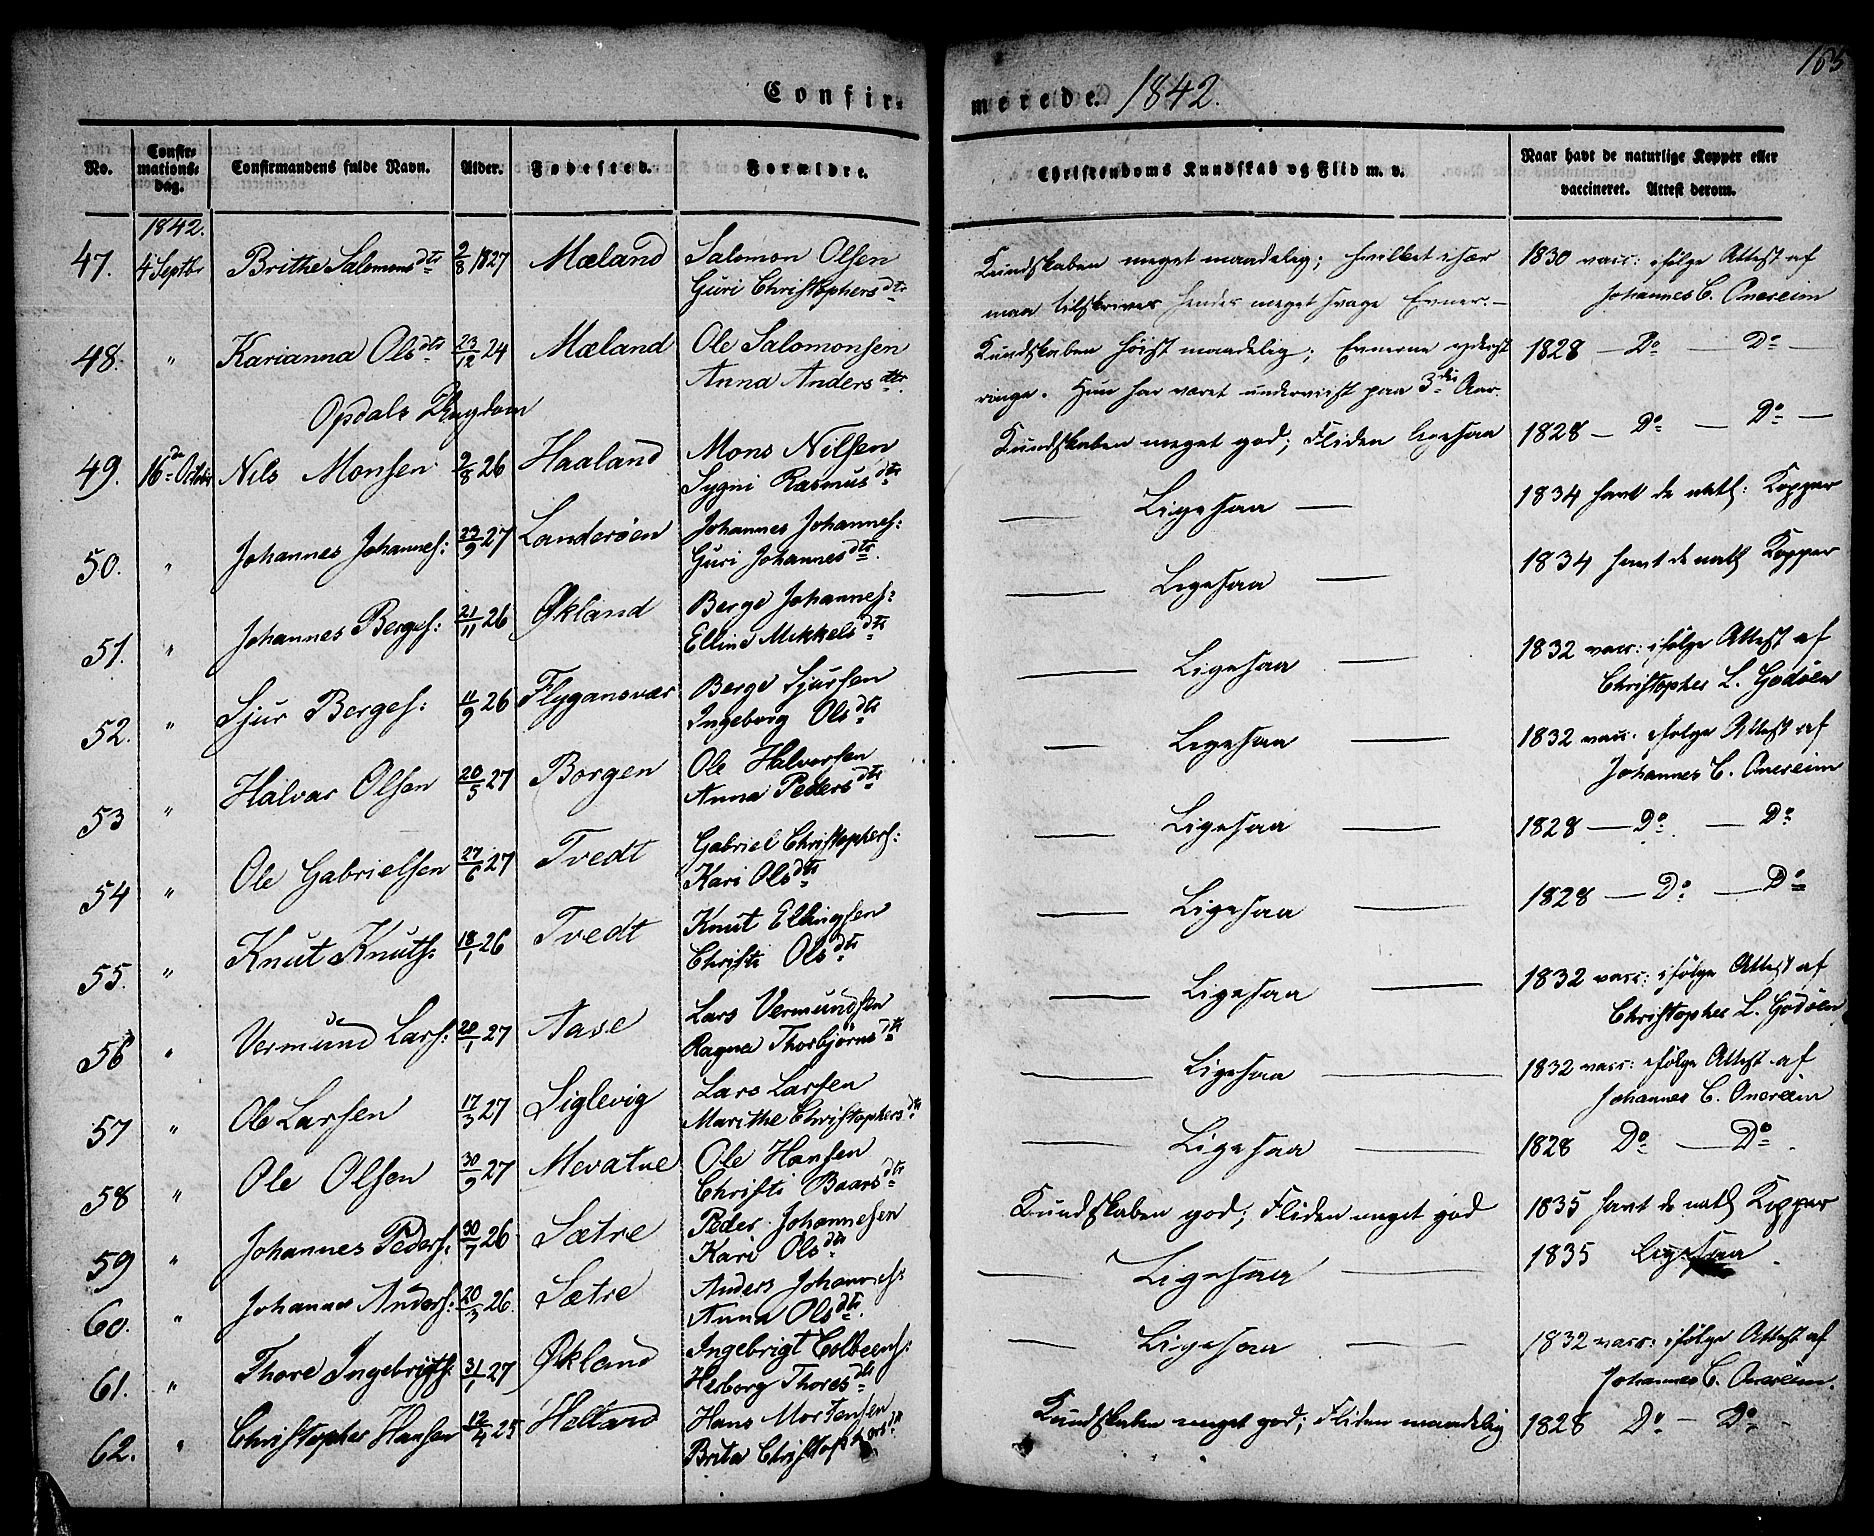 165
Confir-
merede. 1842.
No. Confirmationsdag. Confirmandens fulde Navn. Alder. Fødested. Forældre. Christendoms Kundskab og Flid m. v. Naar havt de naturlige Kopper eller vaccineret. Attest derom.
1842.
47. 4 Septbr Brithe Salomonsdtr 9/8 1827 Mæland Salomon Olsen Kundskaben meget maadelig; hvilket især 1830 vacc: ifølge Attest af
Guri Christophersdtr maa tilskrives hendes meget svage Evner.— Johannes C. Onereim
48. " Karianna Olsdtr 23/12 24 Mæland Ole Salomonsen Kundskaben høist maadelig; Evnerne yderst 1828 — Do — Do —
Anna Andersdtr ringe. Hun har været underviist paa 3die Aar.
Opdals
49. 16de Octobr Nils Monsen 9/8 26 Haaland Mons Nilsen Kundskaben meget god; Fliden ligesaa 1828 — Do — Do —
Sygni Rasmusdtr
50. " Johannes Johannes: 29/9 27 Landerøen Johannes Johannes: — Ligesaa — 1834 havt de natl: Kopper
Guri Johannesdtr
51. " Johannes Berges: 21/11 26 Økland Berge Johannes: — Ligesaa — 1834 havt de natl Kopper
Elline Mikkelsdtr
52. " Sjur Berges: 11/9 26 Flygansvær Berge Sjursen — Ligesaa — 1832 vacc: ifølge Attest af
Ingeborg Olsdtr Christopher L. Godøen
53 " Halvar Olsen 20/5 27 Borgen Ole Halvorsen — Ligesaa — 1832 vacc: ifølge Attest af
Anna Pedersdtr Johannes C. Onereim
54 " Ole Gabrielsen 27/6 27 Tvedt Gabriel Christophers: — Ligesaa — 1828 — Do — Do
Kari Olsdtr
55. " Knut Knuts: 18/1 26 Tvedt Knut Ellingsen — Ligesaa — 1828 — Do — Do
Christi Olsdtr
56 " Vermund Lars: 28/1 27 Aase Lars Vermundsen — Ligesaa — 1832 vacc: ifølge Attest af
Ragna Thorbjørnsdtr Christopher L. Godøen
57 " Ole Larsen 17/3 27 Siglevig Lars Larsen — Ligesaa — 1832 vacc: ifølge Attest af
Marithe Christophersdtr Johannes C. Onereim
58 " Ole Olsen 30/9 27 Mevatne Ole Hansen — Ligesaa — 1828 Do — Do
Christi Baarsdtr
59 " Johannes Peders: 30/7 26 Sætre Peder Johannesen Kundskaben god; Fliden meget god 1835 havt de natl Kopper
Kari Olsdtr
60. " Johannes Anders: 20/3 26. Sætre Anders Johannes: — Ligesaa — 1835 Ligesaa
Anna Olsdtr
61. " Thore Ingebrigts: 31/1 27 Økland Ingebrigt Colbeens: — Ligesaa — 1832 vacc: ifølge Attest af
Herborg Thoresdtr Johannes C. Onereim.
62. " Christopher Hansen 12/4 25 Helland Hans Mortensen Kundskaben meget god; Fliden maadelig 1828 Do — Do —
Brita Christophersdtr